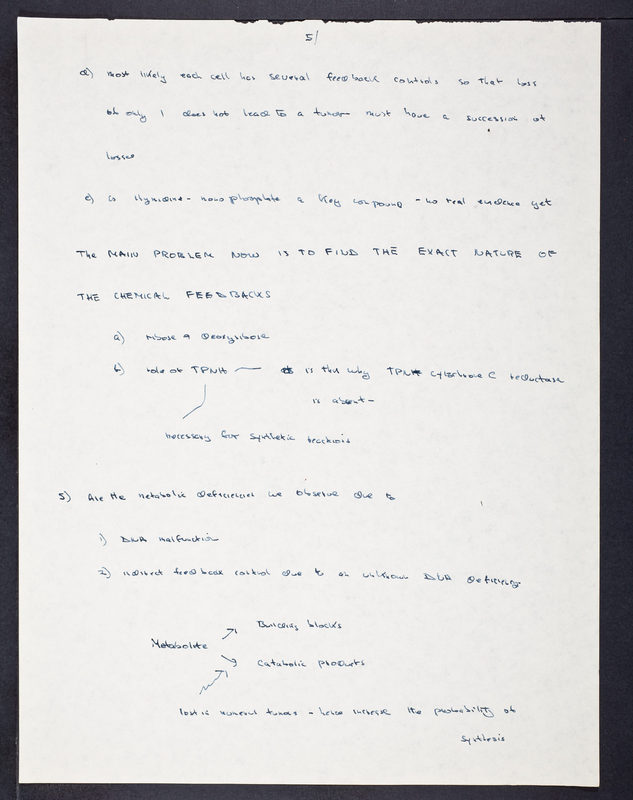 5/
d) most likely each cell has several feedback controls so that loss
of only 1 does not lead to a tumor must have a succession of
losses
e) is thymidine - monophosphate a key compound - no real evidence yet
The MAIN PROBLEM NOW IS TO FIND THE EXACT NATURE OF
THE CHEMICAL FEEDBACKS
a) ribose → deoxyribose
b) role of TPNH — is this why TPNH cytochrome C reductase
is absent -
necessary for synthetic reactions
5) Are the metabolic deficiencies we observe due to
1) DNA malfunction
2) indirect feedback control due to an unknown DNA deficiency
Building blocks
Metabolite
Catabolic products
lost in numerous tumors - hence increase the probability of
synthesis